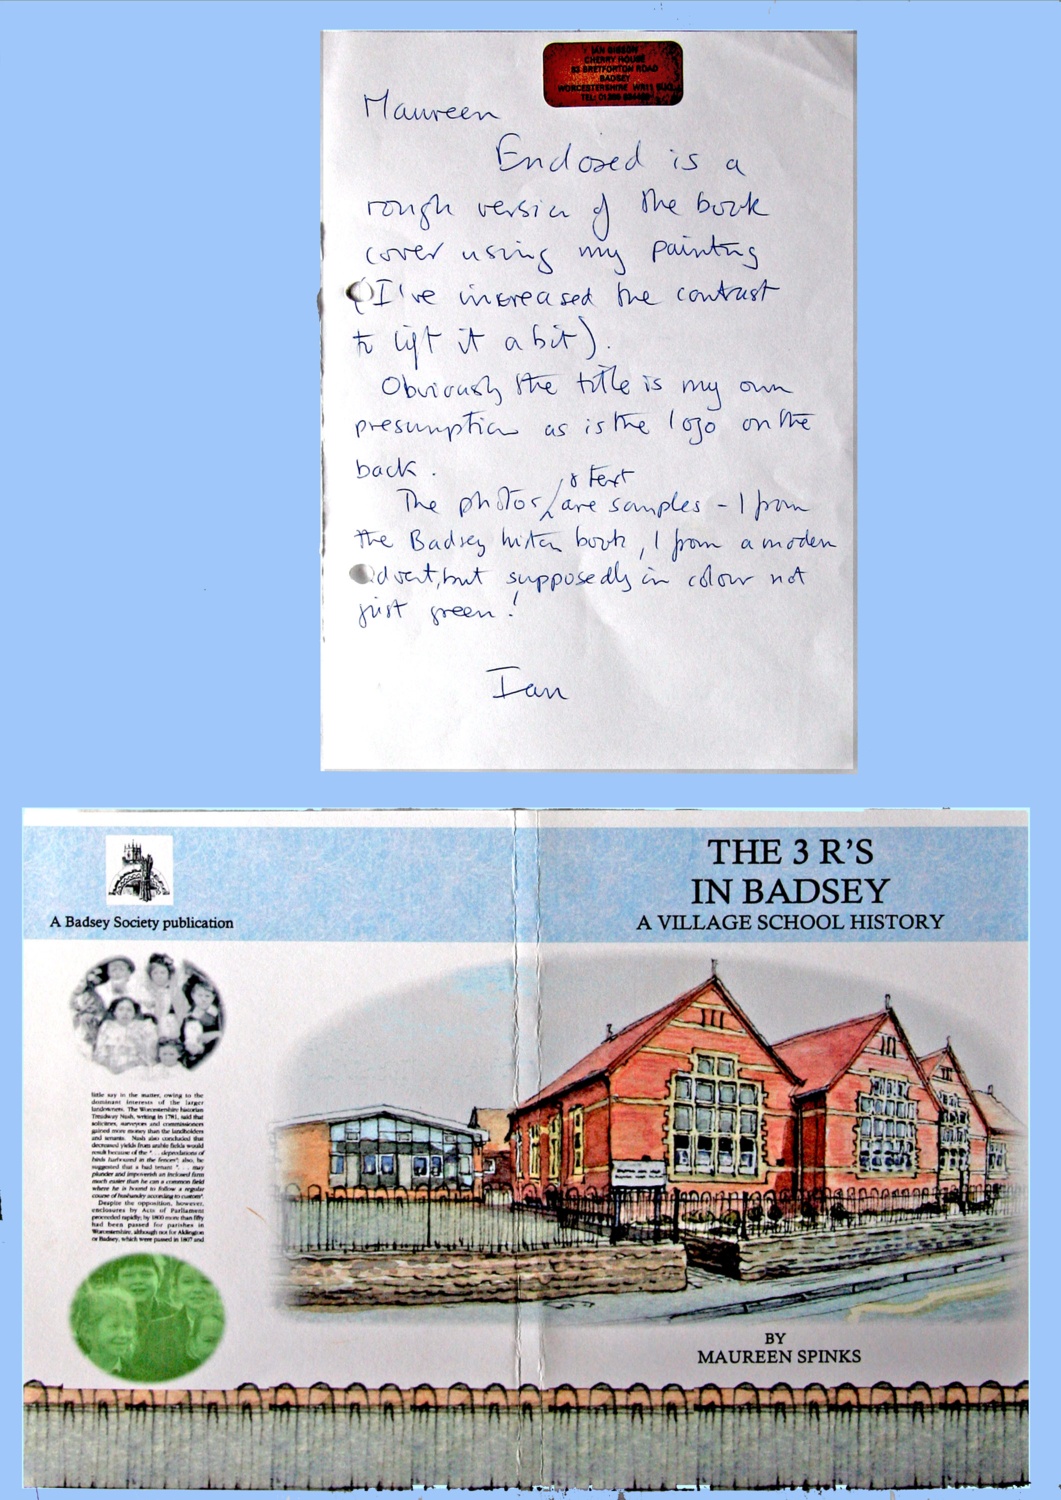 IAN GIBSON
CHERRY HOUSE
93 BRETFORTON ROAD
BADSEY
WORCESTERSHIRE WR11
TEL:
Maureen
Enclosed is a
rough version of the book
cover using my painting
(I've increased the contrast
to lift it a bit).
Obviously the title is my own
presumption as is the logo on the
back.
& text
The photos are samples - 1 from
the Badsey histon book, 1 from a modern
advert, but supposedly in colour not
just green!
Ian
A Badsey Society publication
THE 3 R'S
IN BADSEY
A VILLAGE SCHOOL HISTORY
little say in the matter, owing to the
dominant interests of the larger
landowners. The Worcestershire historian
Treadway Nash, writing in 1781, said that
solicitors, surveyors and commissioners
gained more money than the landholders
and tenants. Nash also concluded that
decreased yields from arable fields would
result because of the ". . . depredations of
birds harboured in the fences"; also, he
suggested that a bad tenant ". . . may
plunder and impoverish an inclosed farm
much easier than he can a common field
where he is bound to follow a regular
course of husbandry according to custom".
Despite the opposition, however,
enclosures by Acts of Parliament
proceeded rapidly; by 1800 more than fifty
had been passed for parishes in
Worcestershire, although not for Aldington
or Badsey, which were passed in 1807 and
BY
MAUREEN SPINKS